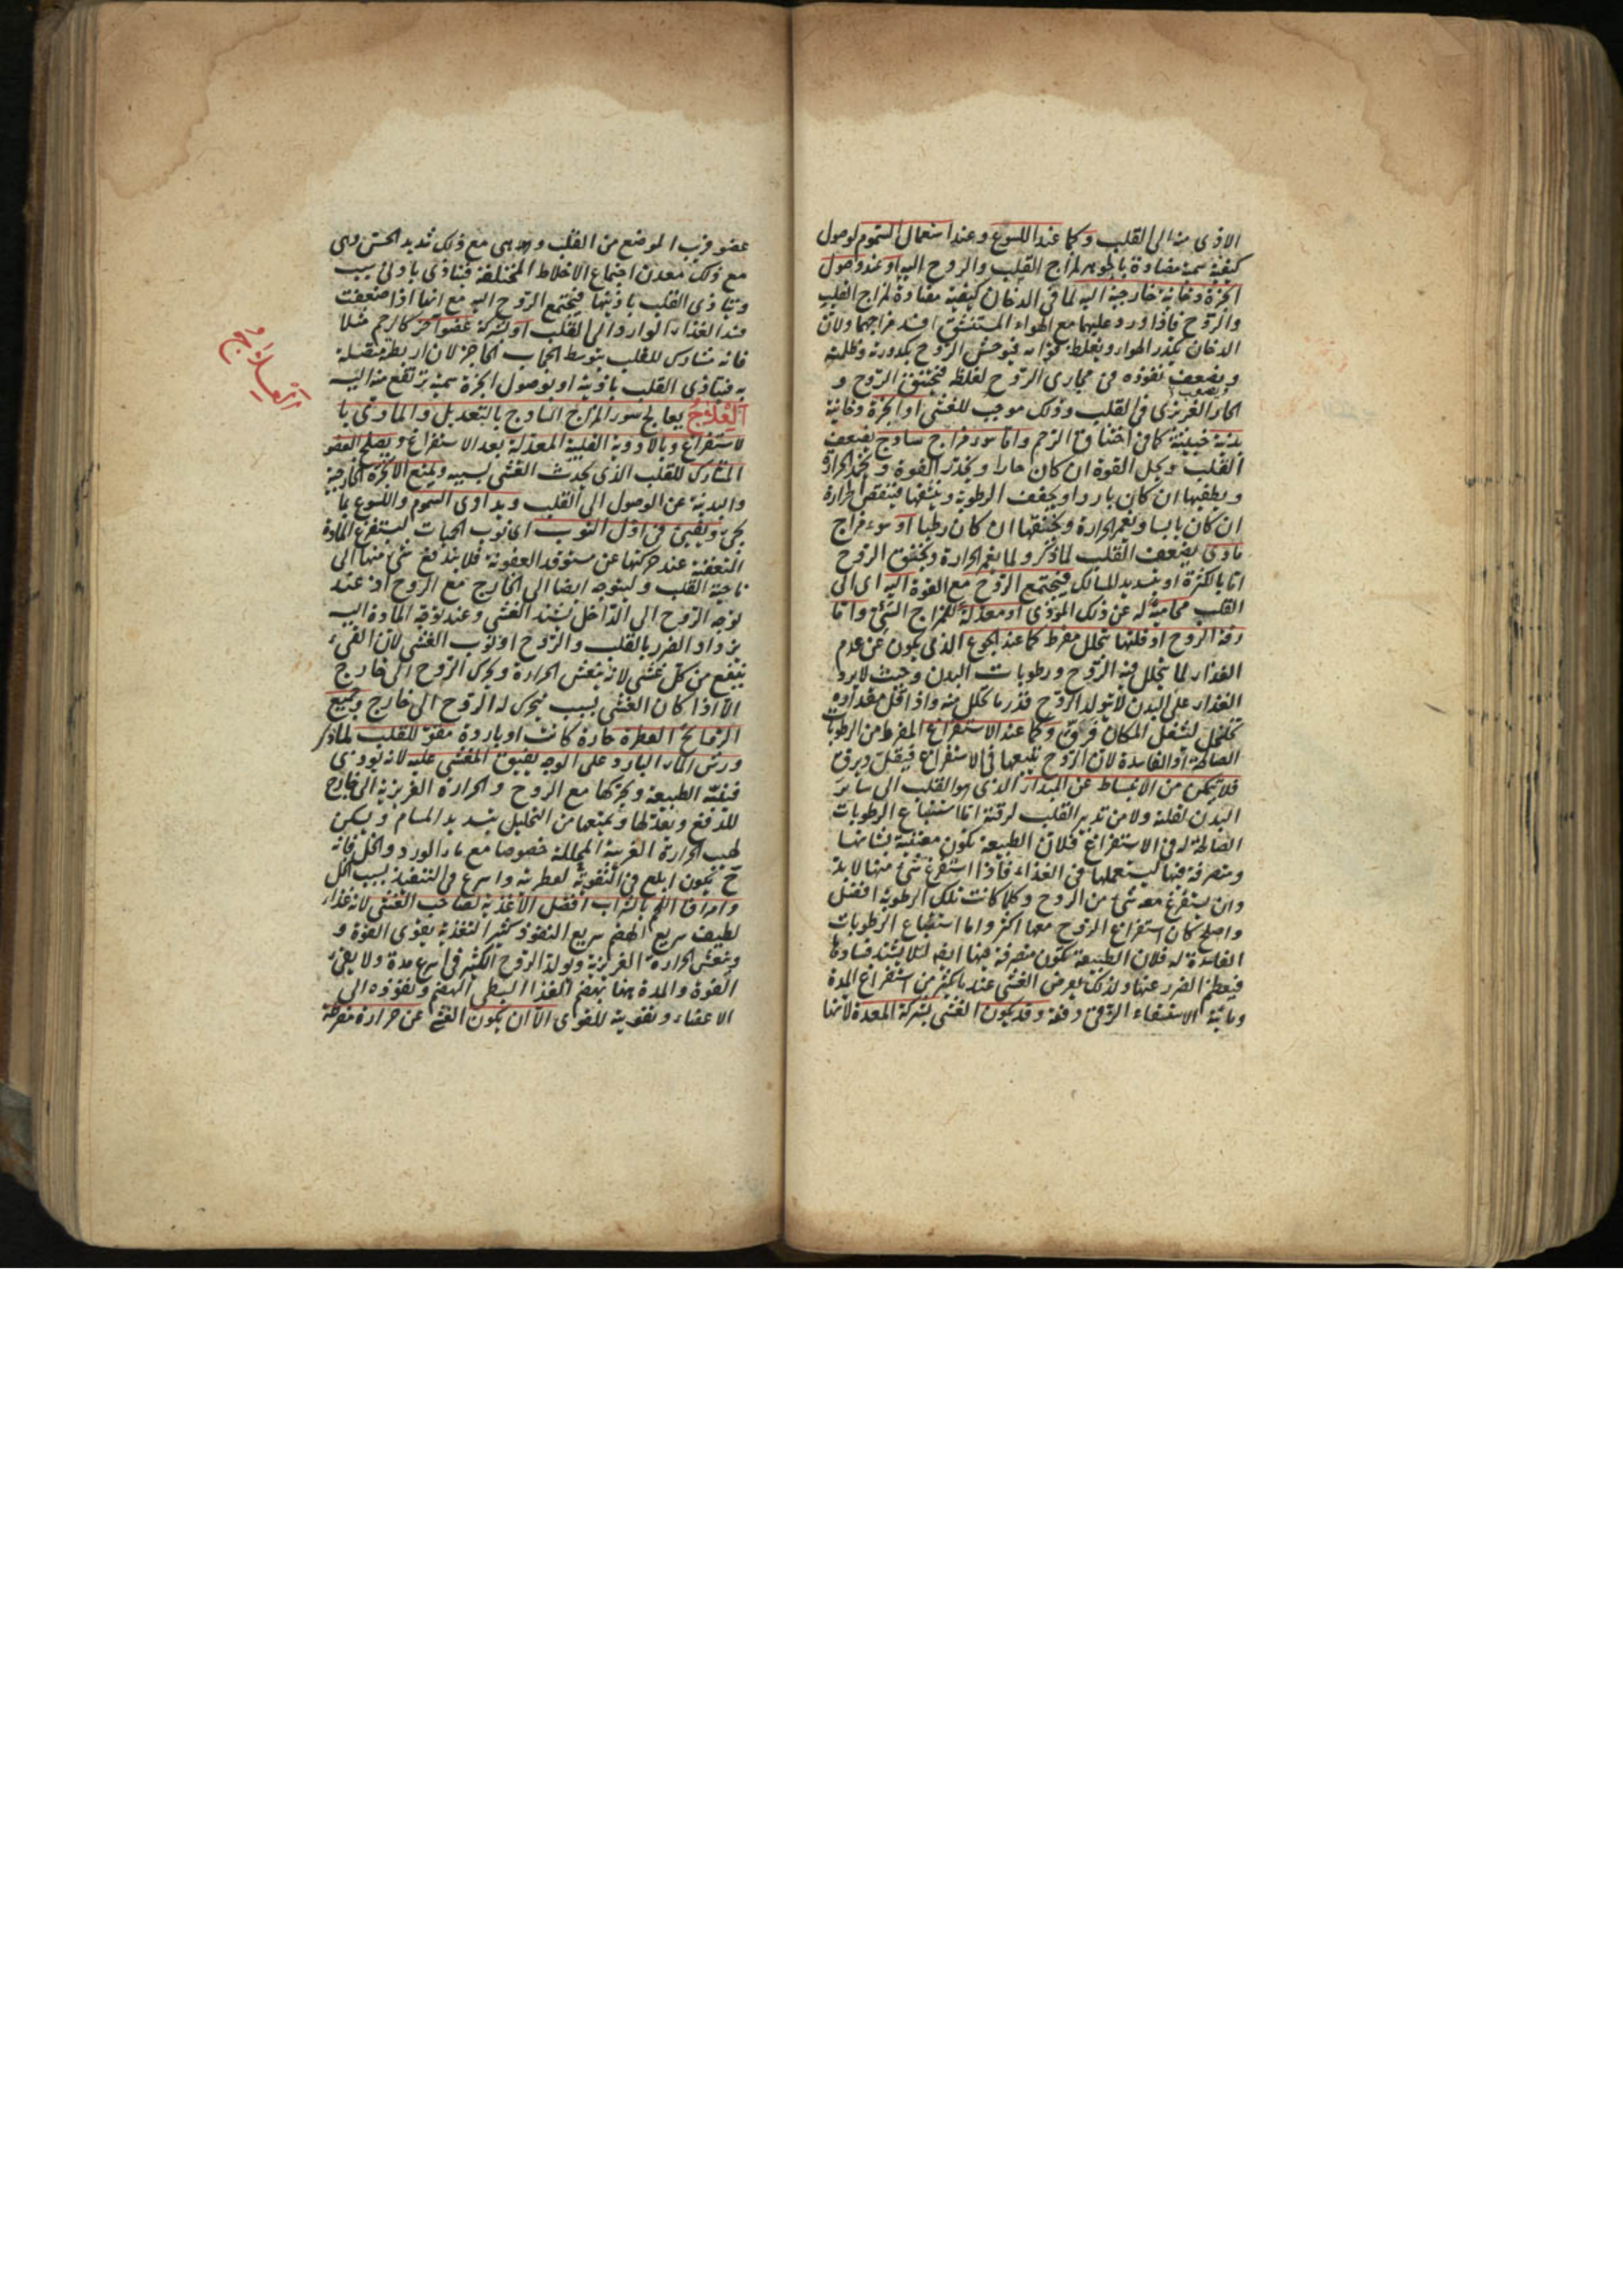 الاذى منه الى القلب وكما عند اللسوع وعند استعمال السموم لوصول
كيفية سمية مضادة بالجوهر لمزاج القلب والروح اليه او عند وصول
ابخرة دخانية خارجية اليه لما فى الدخان كيفية مضادة لمزاج القلب
والروح فاذا ورد عليهما مع الهواء المستنشق افسد مزاجهما ولان
الدخان يكدر الهواء ويغلظ قوامه فيوحش الروح بكدورته وظلمته
ويضعف نفوذه فى مجارى الروح لغلظه فيختنق الروح و
الحار الغريزى فى القلب وذلك موجب للغشى او ابخرة دخانية
بدنية خبيثة كما فى اختناق الرحم واما سوء مزاج ساذج يضعف
القلب ويحل القوة ان كان حارا ويخدر القوة ويخمد الحرارة
ويطفيها ان كان باردا ويجفف الرطوبة وينشفها فينقص الحرارة
ان كان يابسا ويغمر الحرارة ويخنقها ان كان رطبا او سوء مزاج
مادى يضعف القلب لما ذكر ولما يغمر الحرارة ويخنق الروح
اما بالكثرة او بتسديد المسالك فيجتمع الروح مع القوة اليه اى الى
القلب محامية له عن ذلك المؤذى او معدلة للمزاج السيئ واما
رقة الروح او قلتها بتحلل مفرط كما عند الجوع الذى يكون عن عدم
الغذاء لما يتحلل فيه الروح ورطوبات البدن وحيث لا يرد
الغذاء على البدن لا يتولد الروح قدر ما تحلل منه واذا قل مقداره
تخلخل لشغل المكان فرق وكما عند الاستفراغ المفرط من الرطوبات
الصالحة او الفاسدة لان الروح يتبعها فى الاستفراغ فيقل ويرق
فلا يتمكن من الانبساط عن المبداء الذى هو القلب الى ساير
البدن لقلته ولا من تدبير القلب لرقته اما استتباع الرطوبات
الصالحة له فى الاستفراغ فلان الطبيعة تكون معتنية بشانها
ومتصرفة فيها ليستعملها فى الغذاء فاذا استفرغ شئ منها لا بد
وان يستفرغ معه شئ من الروح وكلما كانت تلك الرطوبة افضل
واصلح كان استفراغ الروح معها اكثر واما استتباع الرطوبات
الفاسدة له فلان الطبيعة تكون متصرفة فيها ايضا لئلا يشتد فسادها
فيعظم الضرر عنها ولذلك يعرض الغشى عند ما يكثر من استفراغ المدة
ومائية الاستسقاء الزقى دفعة وقد يكون الغشى بشركة المعدة لانها
عضو قريب الموضع من القلب وهى مع ذلك شديد الحس وهى
مع ذلك معدن اجتماع الاخلاط المختلفة فيتاذى بادنى سبب
ويتاذى القلب باذيتها فيجتمع الروح اليه مع انها اذا ضعفت
فسد الغذاء الوارد الى القلب او بشركة عضو آخر كالرحم مثلا
فانه مشارك للقلب بتوسط الحجاب الحاجز لان اربطته متصلة
به فيتاذى القلب باذيته او بوصول ابخرة سمية يرتفع منه اليه
العلاج يعالج سوء المزاج الساذج بالتعديل والمادى با
لاستفراغ وبالادوية القلبية المعدلة بعد الاستفراغ ويصلح العضو
المشارك للقلب الذى يحدث الغشى بسببه ويمنع الابخرة الخارجية
والبدنية عن الوصول الى القلب ويداوى السموم واللسوع بما
يجئ ويقيئ فى اول النوب اى نوب الحميات ليستفرغ المادة
المتعفنة عند حركتها عن مستوقد العفونة فلا يندفع شئ منها الى
ناحية القلب وليتوجه ايضا الى الخارج مع الروح اذ عند
توجه الروح الى الداخل يشتد الغشى وعند توجه المادة اليه
يزداد الضرر بالقلب والروح او نوب الغشى لان القيء
ينفع من كل غشى لانه ينعش الحرارة ويحرك الروح الى خارج
الا اذا كان الغشى بسبب تحرك له الروح الى خارج وجميع
الروائح العطرة حارة كانت او باردة مقو للقلب لما ذكر
ورش الماء البارد على الوجه يفيق المغشى عليه لانه يوذى
فينبه الطبيعة ويحركها مع الروح والحرارة الغريزية الى خارج
للدفع ويعدلها ويمنعها من التحليل بتسديد المسام ويسكن
لهب الحرارة الغريبة المحللة خصوصا مع ماء الورد والخل فانه
ح يكون ابلغ فى التقوية لعطريته واسرع فى التنفيذ بسبب الخل
وامراق اللحم بالشراب افضل الاغذية لصاحب الغشى لانه غذاء
لطيف سريع الهضم سريع النفوذ كثير التغذية يقوى القوة و
ينعش الحرارة الغريزية ويولد الروح الكثير فى اسرع مدة ولا يفى
القوة والمدة هنا بهضم الغذا البطى الهضم ونفوذه الى
الاعضاء وتقوية للقوى الا ان يكون الغشى عن حرارة مفرطة